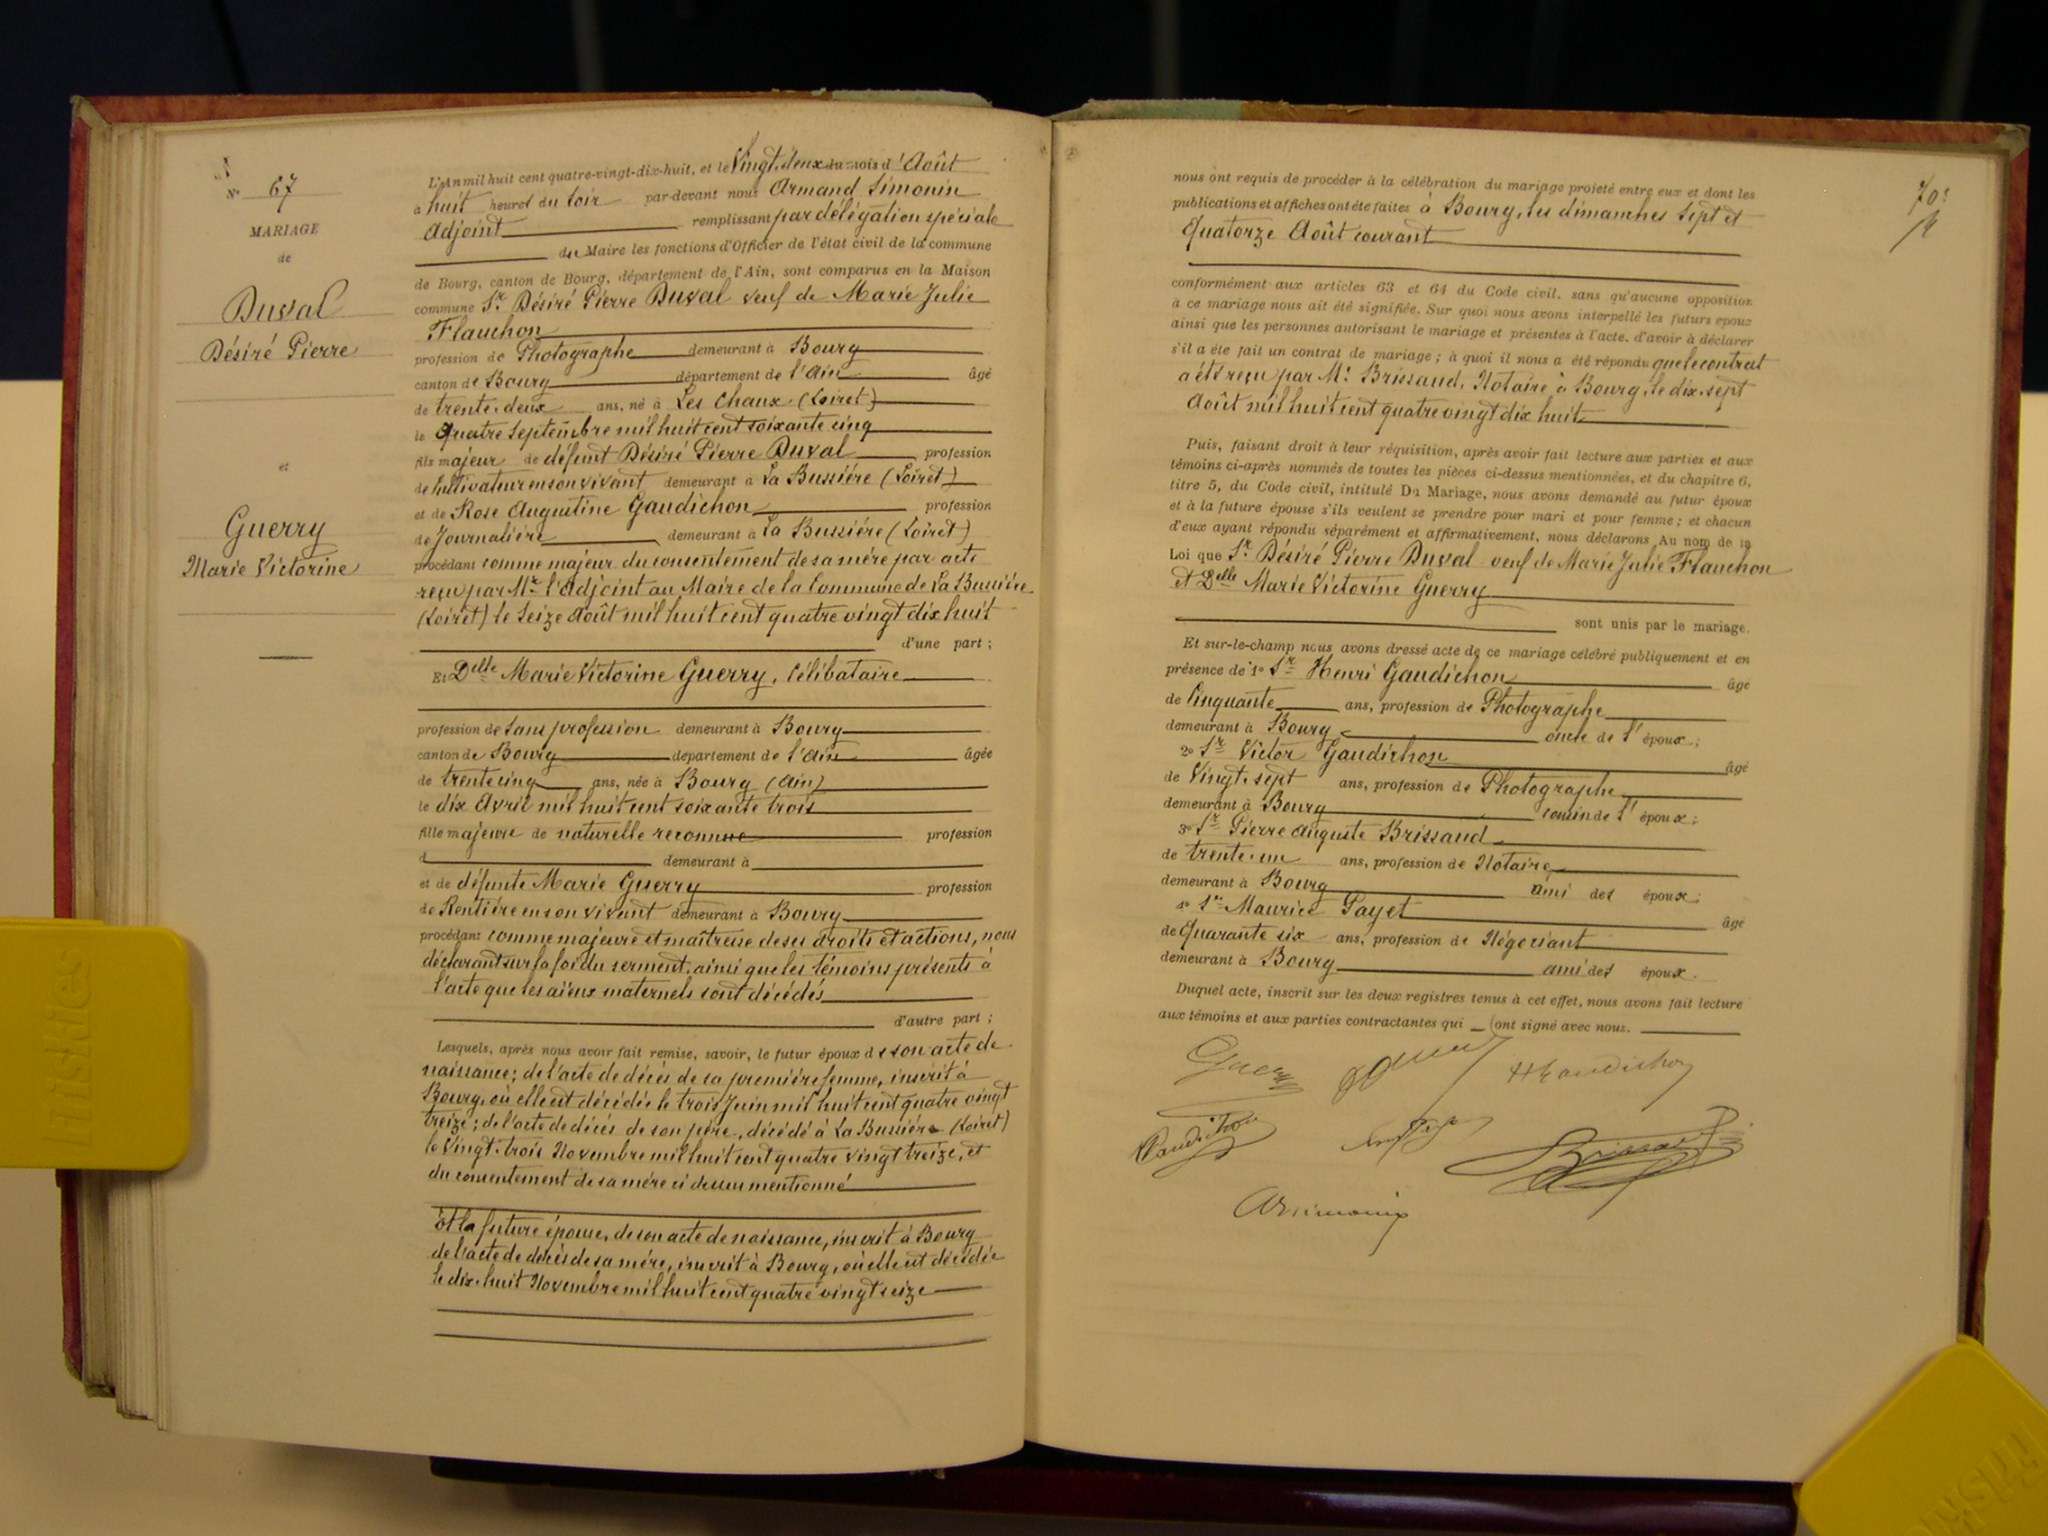 Nº 67
MARIAGE
de
Duval
Désiré Pierre
et
Guerry
Marie Victorine
L'An mil huit cent quatre-vingt-dix-huit, et le Vingt deux du mois d'Août
à huit heures du soir par-devant nous Armand Simonin
Adjoint remplissant par délégation spéciale
du Maire les fonctions d'Officier de l'état civil de la commune
de Bourg, canton de Bourg, département de l'Ain, sont comparus en la Maison
commune Sr Désiré Pierre Duval veuf de Marie Julie
Flauchon
profession de Photographe demeurant à Bourg
canton de Bourg département de l'Ain âgé
de trente-deux ans, né à Les Chaux (Loiret)
le quatre Septembre mil huit cent soixante cinq
fils majeur de défunt Désiré Pierre Duval profession
de Cultivateur en son vivant demeurant à La Bussière (Loiret)
et de Rose Augustine Gaudichon profession
de Journalière demeurant à La Bussière (Loiret)
procédant comme majeur du consentement de sa mère par acte
reçu par Mr l'Adjoint au Maire de la Commune de La Bussière
(Loiret) le Seize Août mil huit cent quatre vingt dix huit
d'une part ;
Et Delle Marie Victorine Guerry, Célibataire
profession de Sans profession demeurant à Bourg
canton de Bourg département de l'Ain âgée
de trente cinq ans, née à Bourg (Ain)
le dix Avril mil huit cent soixante trois
fille majeure de naturelle reconnue profession
d demeurant à
et de défunte Marie Guerry profession
de Rentière en son vivant demeurant à Bourg
procédant comme majeure et maîtresse de ses droits et actions, nous
déclarant sur la foi du serment, ainsi que les témoins présents à
l'acte que les aïeux maternels sont décédés
d'autre part ;
Lesquels, après nous avoir fait remise, savoir, le futur époux de son acte de
naissance; de l'acte de décès de sa première femme, inscrit à
Bourg, où elle est décédée le trois Juin mil huit cent quatre vingt
treize; de l'acte de décès de son père, décédé à La Bussière (Loiret)
le Vingt-trois Novembre mil huit cent quatre vingt treize, et
du consentement de sa mère ci dessus mentionné
Et la future épouse, de son acte de naissance, inscrit à Bourg
de l'acte de décès de sa mère, inscrit à Bourg, où elle est décédée
le dix-huit Novembre mil huit cent quatre vingt seize
70
nous ont requis de procéder à la célébration du mariage projeté entre eux et dont les
publications et affiches ont été faites à Bourg, les dimanches Sept et
Quatorze Août courant
conformément aux articles 63 et 64 du Code civil, sans qu'aucune opposition
à ce mariage nous ait été signifiée. Sur quoi nous avons interpellé les futurs époux
ainsi que les personnes autorisant le mariage et présentes à l'acte, d'avoir à déclarer
s'il a été fait un contrat de mariage ; à quoi il nous a été répondu que le contrat
a été reçu par Me Brissaud, Notaire à Bourg, le dix-sept
Août mil huit cent quatre vingt dix huit
Puis, faisant droit à leur réquisition, après avoir fait lecture aux parties et aux
témoins ci-après nommés de toutes les pièces ci-dessus mentionnées, et du chapitre 6,
titre 5, du Code civil, intitulé Du Mariage, nous avons demandé au futur époux
et à la future épouse s'ils veulent se prendre pour mari et pour femme ; et chacun
d'eux ayant répondu séparément et affirmativement, nous déclarons Au nom de la
Loi que Sr Désiré Pierre Duval veuf de Marie Julie Flauchon
Et Delle Marie Victorine Guerry
sont unis par le mariage.
Et sur-le-champ nous avons dressé acte de ce mariage célébré publiquement et en
présence de 1º Sr Henri Gaudichon âgé
de Cinquante ans, profession de Photographe
demeurant à Bourg oncle de l'époux ;
2º Sr Victor Gaudichon âgé
de Vingt-sept ans, profession de Photographe
demeurant à Bourg cousin de l'époux ;
3º Sr Pierre Auguste Brissaud
de trente-un ans, profession de Notaire
demeurant à Bourg ami des époux ;
4º Sr Maurice Payet âgé
de Quarante six ans, profession de Négociant
demeurant à Bourg ami des époux.
Duquel acte, inscrit sur les deux registres tenus à cet effet, nous avons fait lecture
aux témoins et aux parties contractantes qui ont signé avec nous.
HGaudichon
Gaudichon
Brissaud
ASimonin